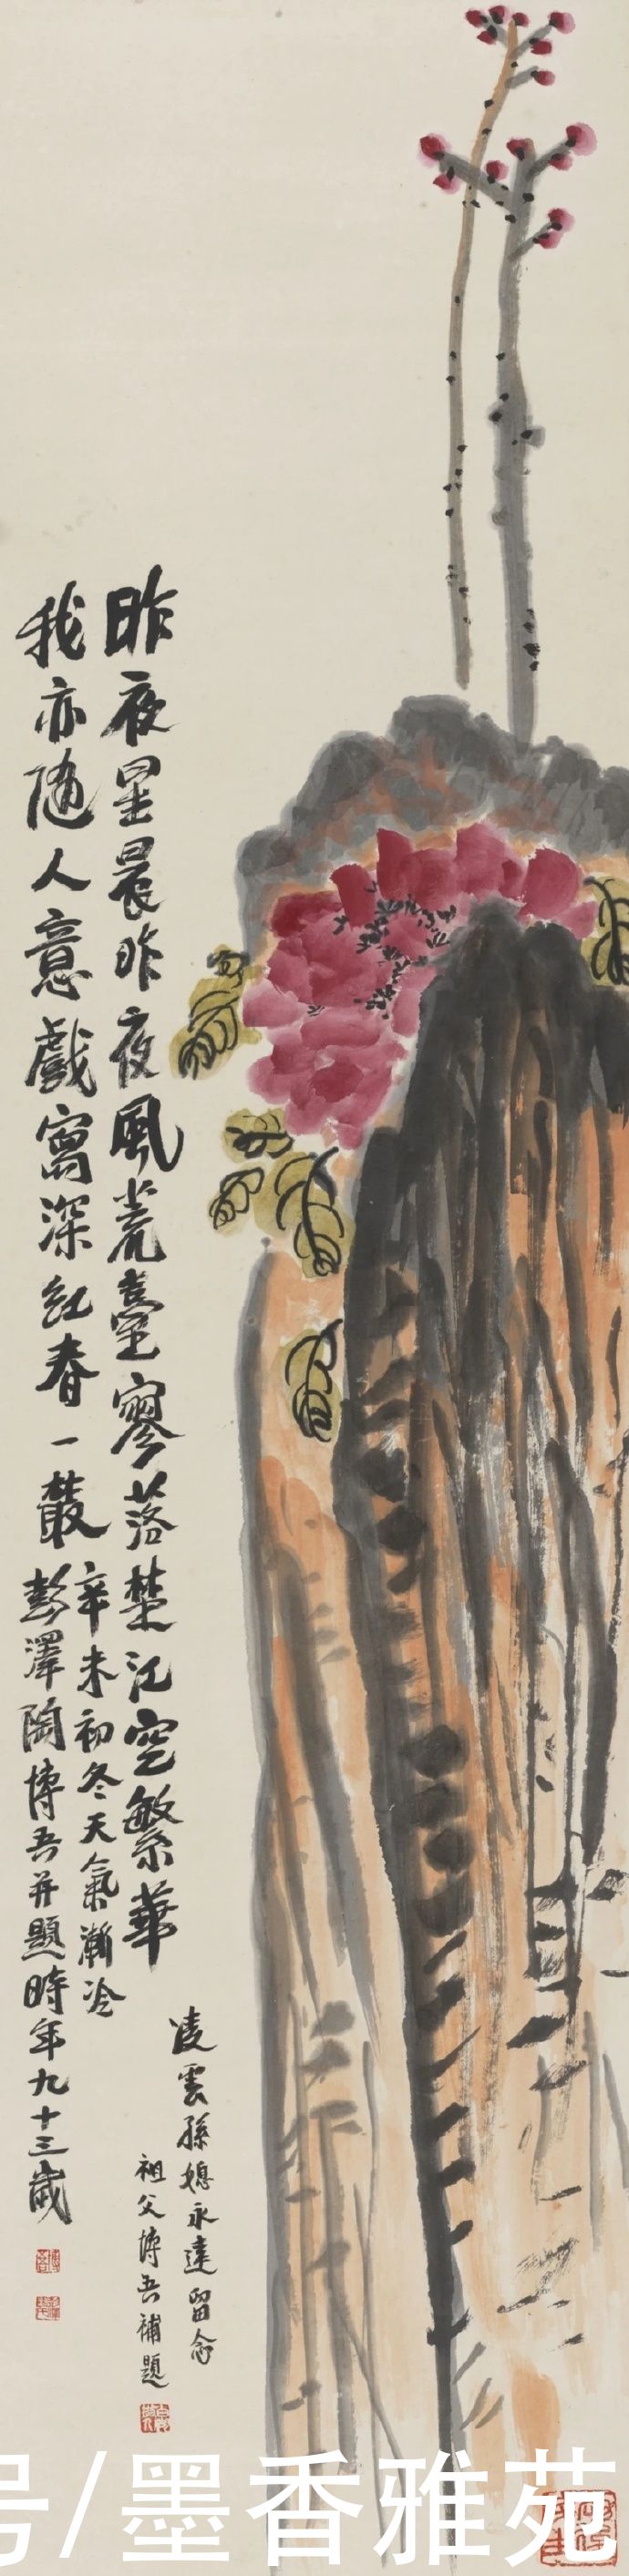 昨夜星晨昨夜風荒臺寥落楚江空繁華
我亦隨人意戲寫深紅春一叢
辛未初冬天氣漸冷
彭澤陶博吾并題時年九十三歲
凌雲孫媳永遠留念
祖父博吾補題
号/墨香雅苑